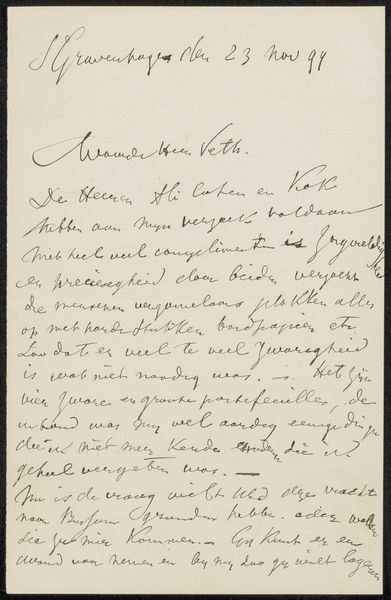 S'Gravenhage den 23 Nov 99
Waarde Heer Veth.
De Heeren Ali Cohen en Kok
hebben aan mijn verzoek voldaan
met heel veel complimenten is zorgvuldigheid
en preciesigheid door beiden verzocht
die menschen verzamelaars plakken alles
op met harde stukken bordpapier etc
Zoo dat er veel te veel zwarigheid
is wat niet noodig was. — Het zijn
vier zware en groote portefeuilles, de
inhoud was mij wel aardig eenige dingen
die ik niet meer kende en die ik
geheel vergeten was. —
Nu is de vraag wilt UEd deze vracht
naar Bussum gezonden hebben. oder
die zu hier kommen. — Gij kunt er een
avond voor nemen en bij mij zoo gij wilt logeren